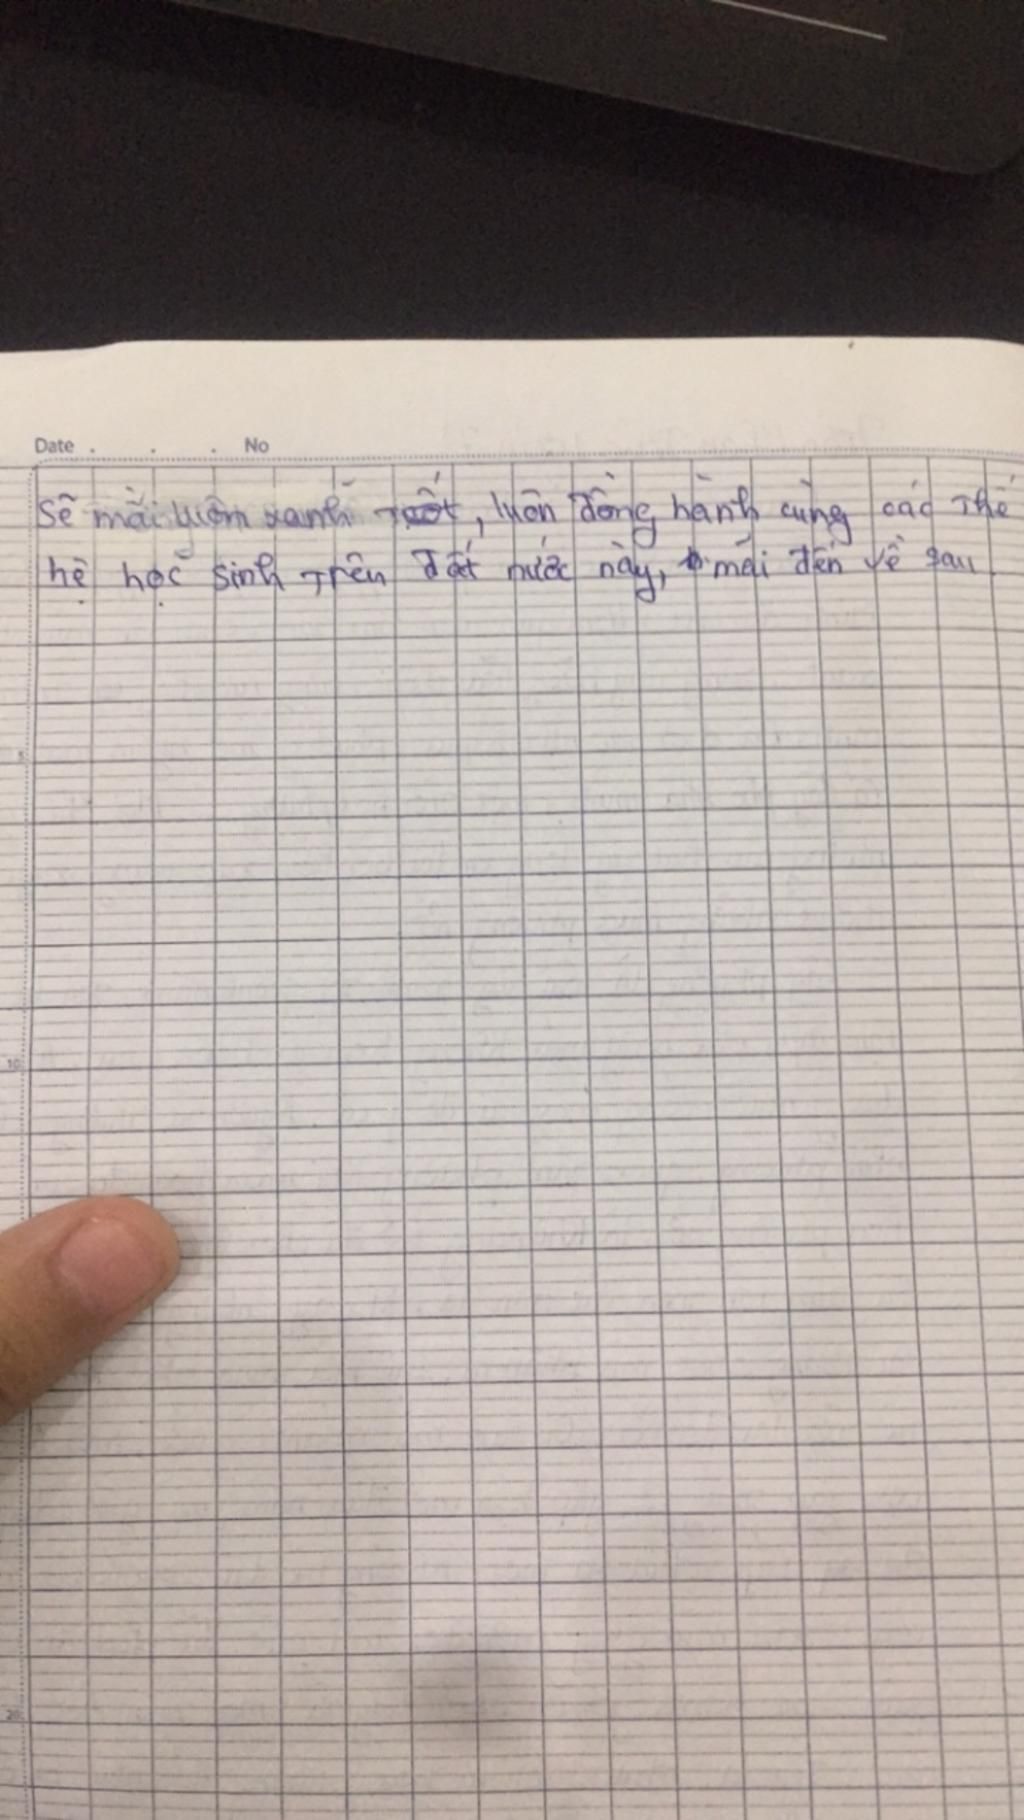 Date No
Sẽ mãi luôn xanh tốt, luôn đồng hành cùng các thế
hệ học sinh trên đất nước này, mãi đến về sau
5
10
20